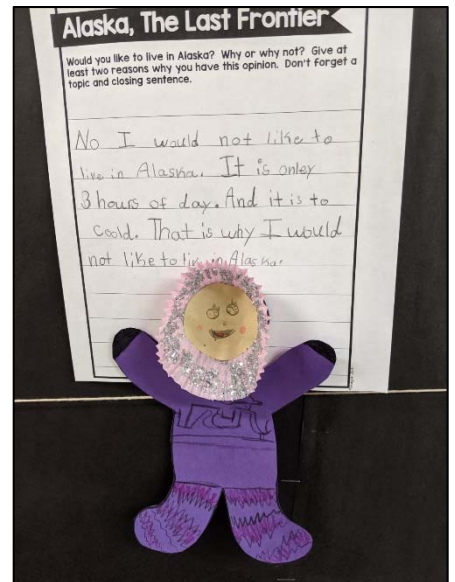 Alaska, The Last Frontier
Would you like to live in Alaska? Why or why not? Give at
least two reasons why you have this opinion. Don't forget a
topic and closing sentence.
No I would not like to
live in Alaska. It is onley
3 hours of day. And it is to
coold. That is why I would
not like to live in Alaska.